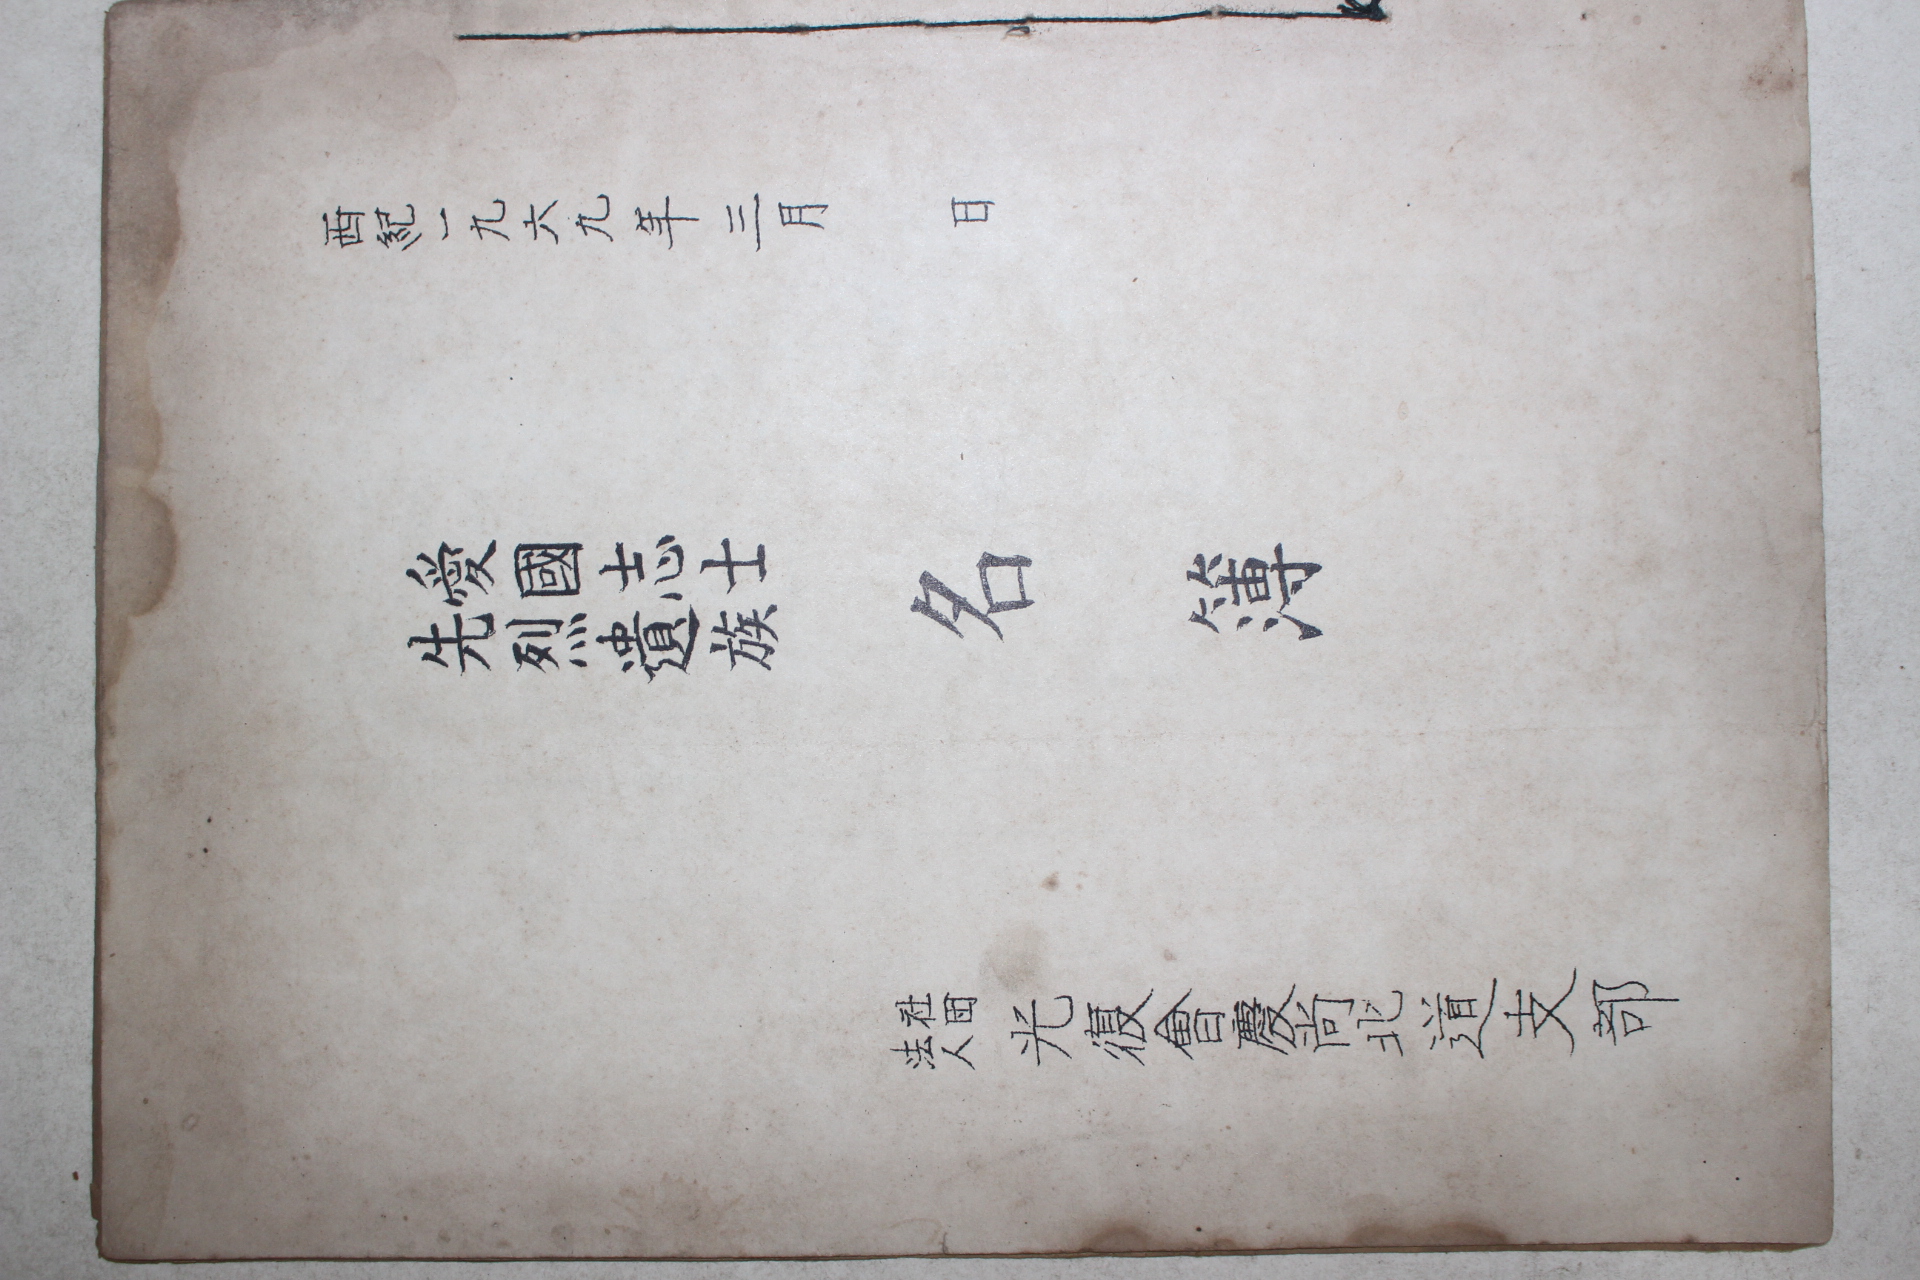 西紀一九六九年三月 日
愛國志士
先烈遺族
名簿
社団
法人
光復會慶尚北道支部